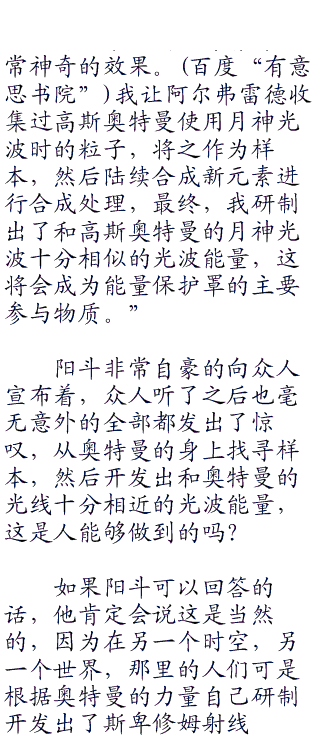 常神奇的效果。(百度“有意
思书院”)我让阿尔弗雷德收
集过高斯奥特曼使用月神光
波时的粒子，将之作为样
本，然后陆续合成新元素进
行合成处理，最终，我研制
出了和高斯奥特曼的月神光
波十分相似的光波能量，这
将会成为能量保护罩的主要
参与物质。”
阳斗非常自豪的向众人
宣布着，众人听了之后也毫
无意外的全部都发出了惊
叹，从奥特曼的身上找寻样
本，然后开发出和奥特曼的
光线十分相近的光波能量，
这是人能够做到的吗?
如果阳斗可以回答的
话，他肯定会说这是当然
的，因为在另一个时空，另
一个世界，那里的人们可是
根据奥特曼的力量自己研制
开发出了斯卑修姆射线